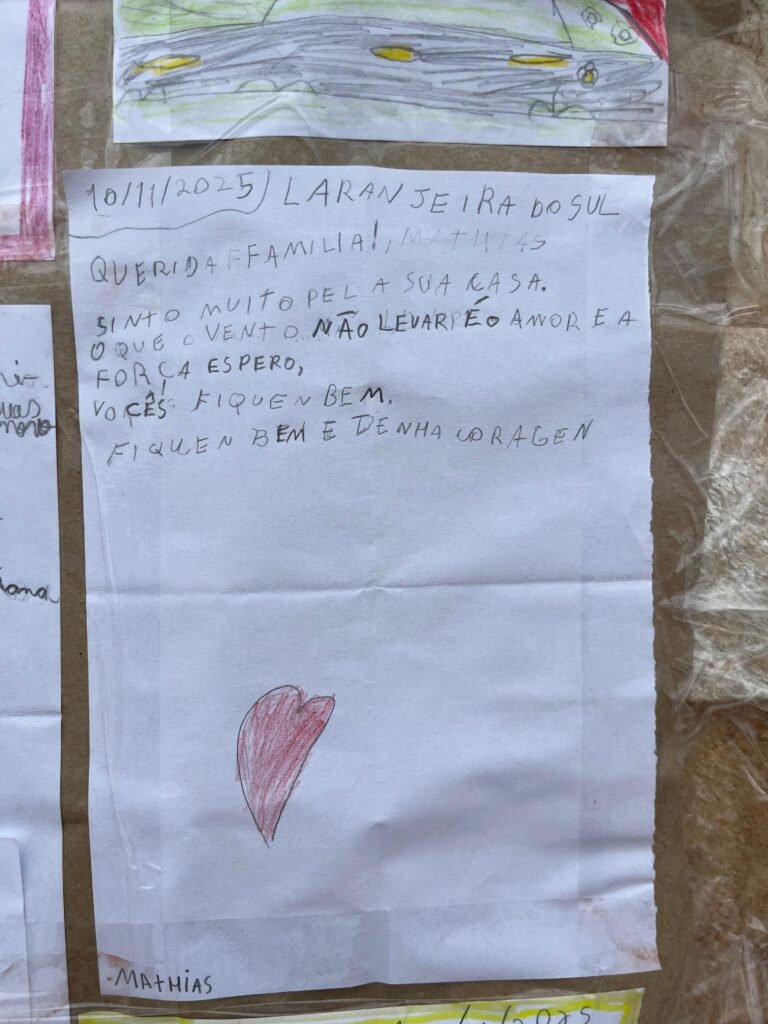 10/11/2025) LARANJEIRA DO SUL
QUERIDA FFAMILIA!, MATHIAS
SINTO MUITO PELA SUA CASA.
O QUE O VENTO NÃO LEVAR É O AMOR E A
FORÇA ESPERO,
VOCÊS FIQUEN BEM.
FIQUEN BEM E DENHA CORAGEN
-MATHIAS
uas
novo